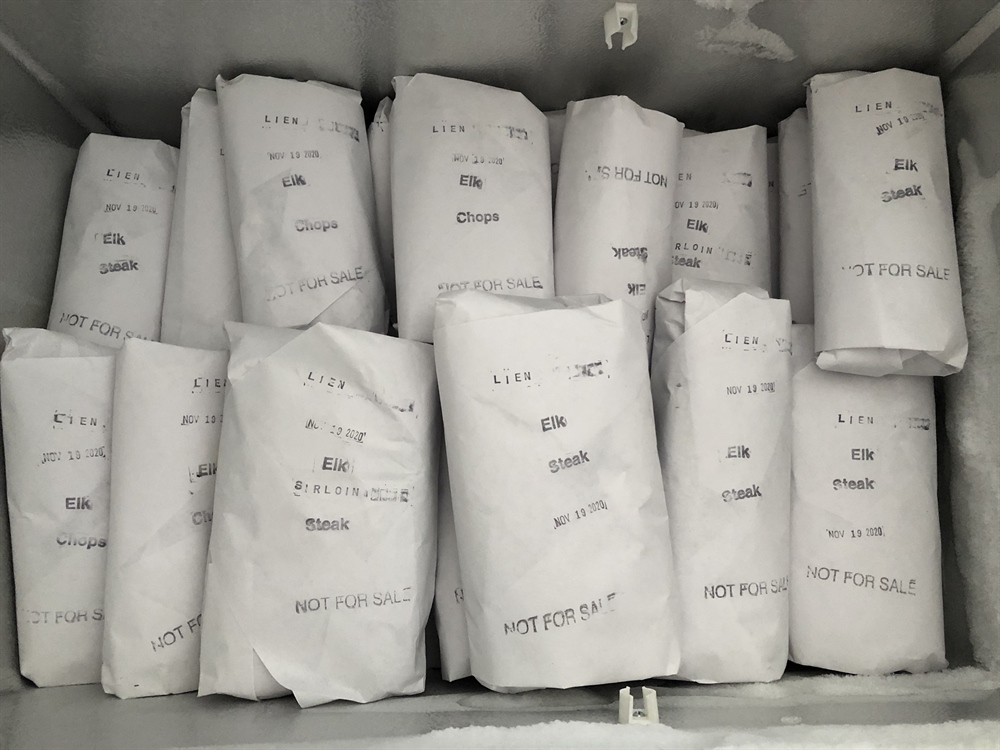 LIEN
NOV 19 2020
Elk
Steak
NOT FOR SALE
LIEN
NOV 19 2020
Elk
Chops
NOT FOR SALE
LIEN
NOV 19 2020
Elk
Chops
NOT FOR SALE
NOT FOR
Steak
Elk
NOV 19 2020
Elk
SIRLOIN
Steak
LIEN
NOV 19
Elk
Steak
NOT FOR SALE
LIEN
NOV 18 2020
Elk
Chops
NOT FOR S
LIEN
NOV 19 2
Elk
NOT F
LIEN
NOV 19 2020
Elk
SIRLOIN
Steak
NOT FOR SALE
LIEN
Elk
Steak
NOV 19 2020
NOT FOR SALE
LIEN
NOV 19 2020
Elk
Steak
NOT FOR SALE
LIEN
Elk
Steak
NOV 19 2020
NOT FOR SALE